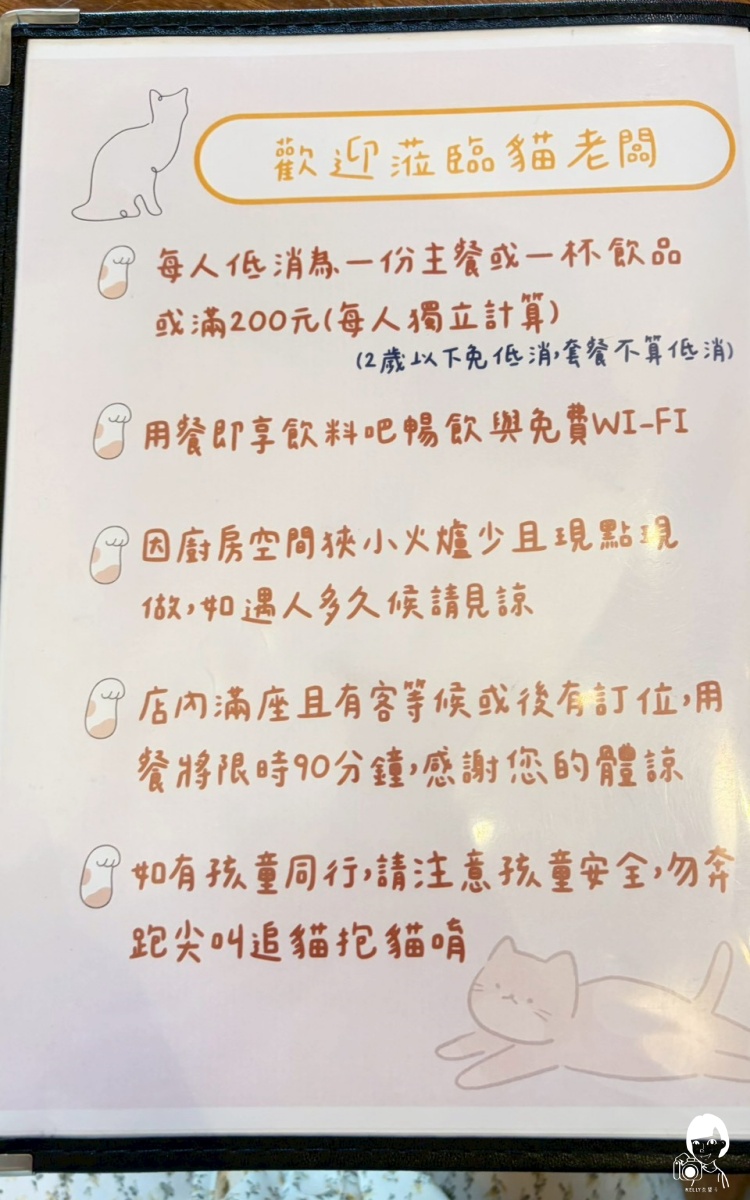 歡迎蒞臨貓老闆
每人低消為一份主餐或一杯飲品
或滿200元(每人獨立計算)
(2歲以下免低消,套餐不算低消)
用餐即享飲料吧暢飲與免費WI-FI
因廚房空間狹小火爐少且現點現
做,如遇人多久候請見諒
店內滿座且有客等候或後有訂位,用
餐將限時90分鐘,感謝您的體諒
如有孩童同行,請注意孩童安全,勿奔
跑尖叫追貓抱貓唷